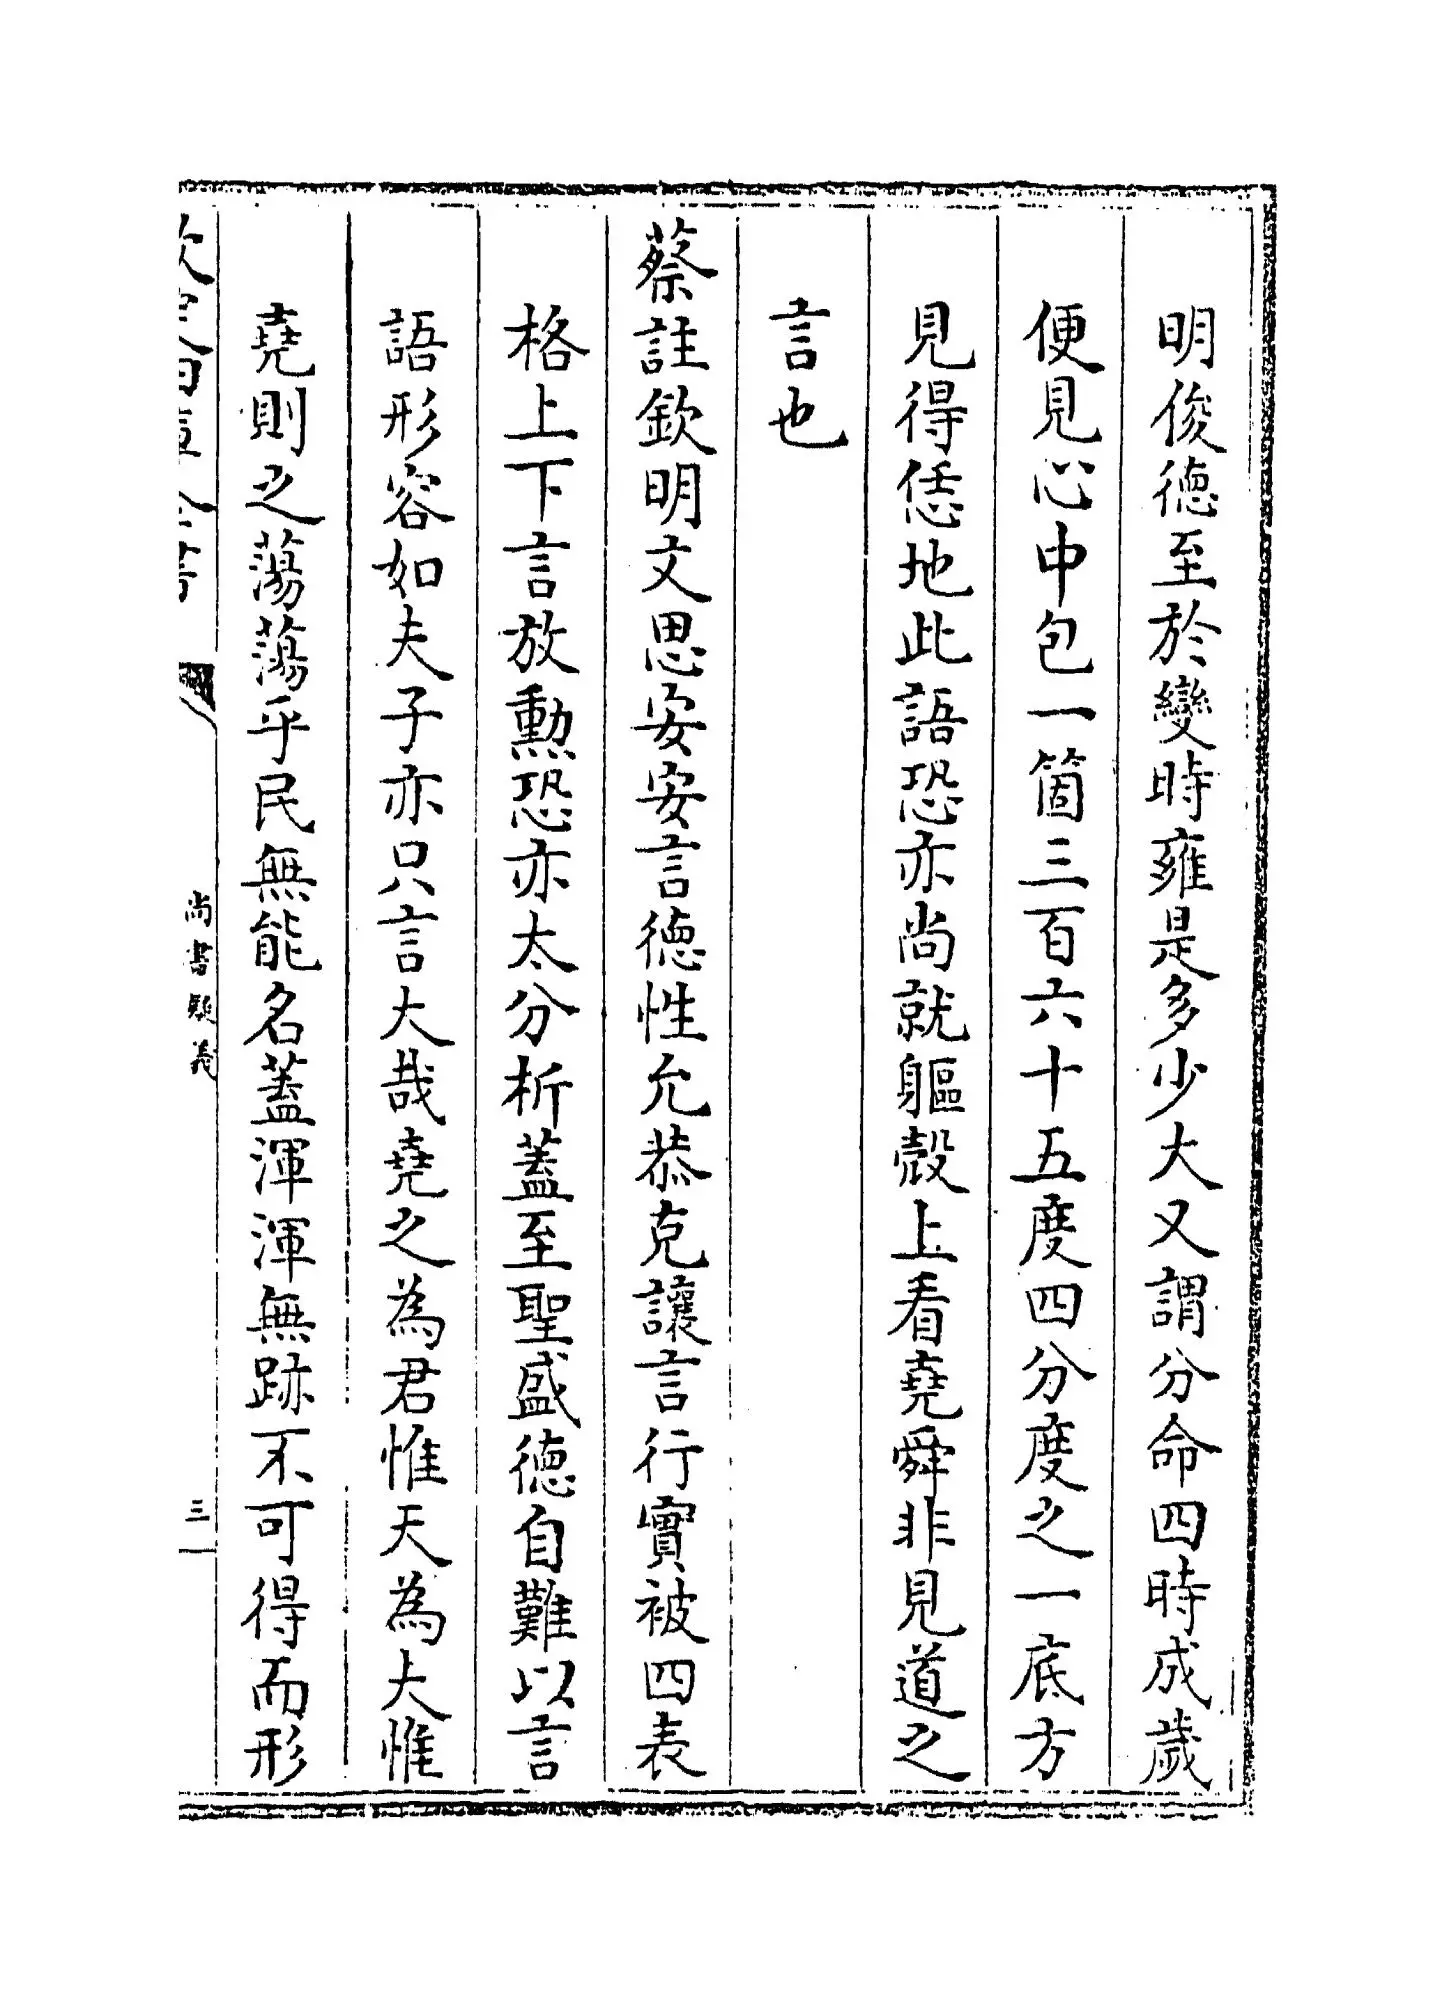 明俊德至於變時雍是多少大又謂分命四時成歲
便見心中包一箇三百六十五度四分度之一底方
見得恁地此語恐亦尚就軀殼上看堯舜非見道之
言也
蔡註欽明文思安安言德性允恭克讓言行實被四表
格上下言放勲恐亦太分析蓋至聖盛德自難以言
語形容如夫子亦只言大哉堯之為君惟天為大惟
堯則之蕩蕩乎民無能名蓋渾渾無跡不可得而形
欽定四庫全書
尚書疑義
三